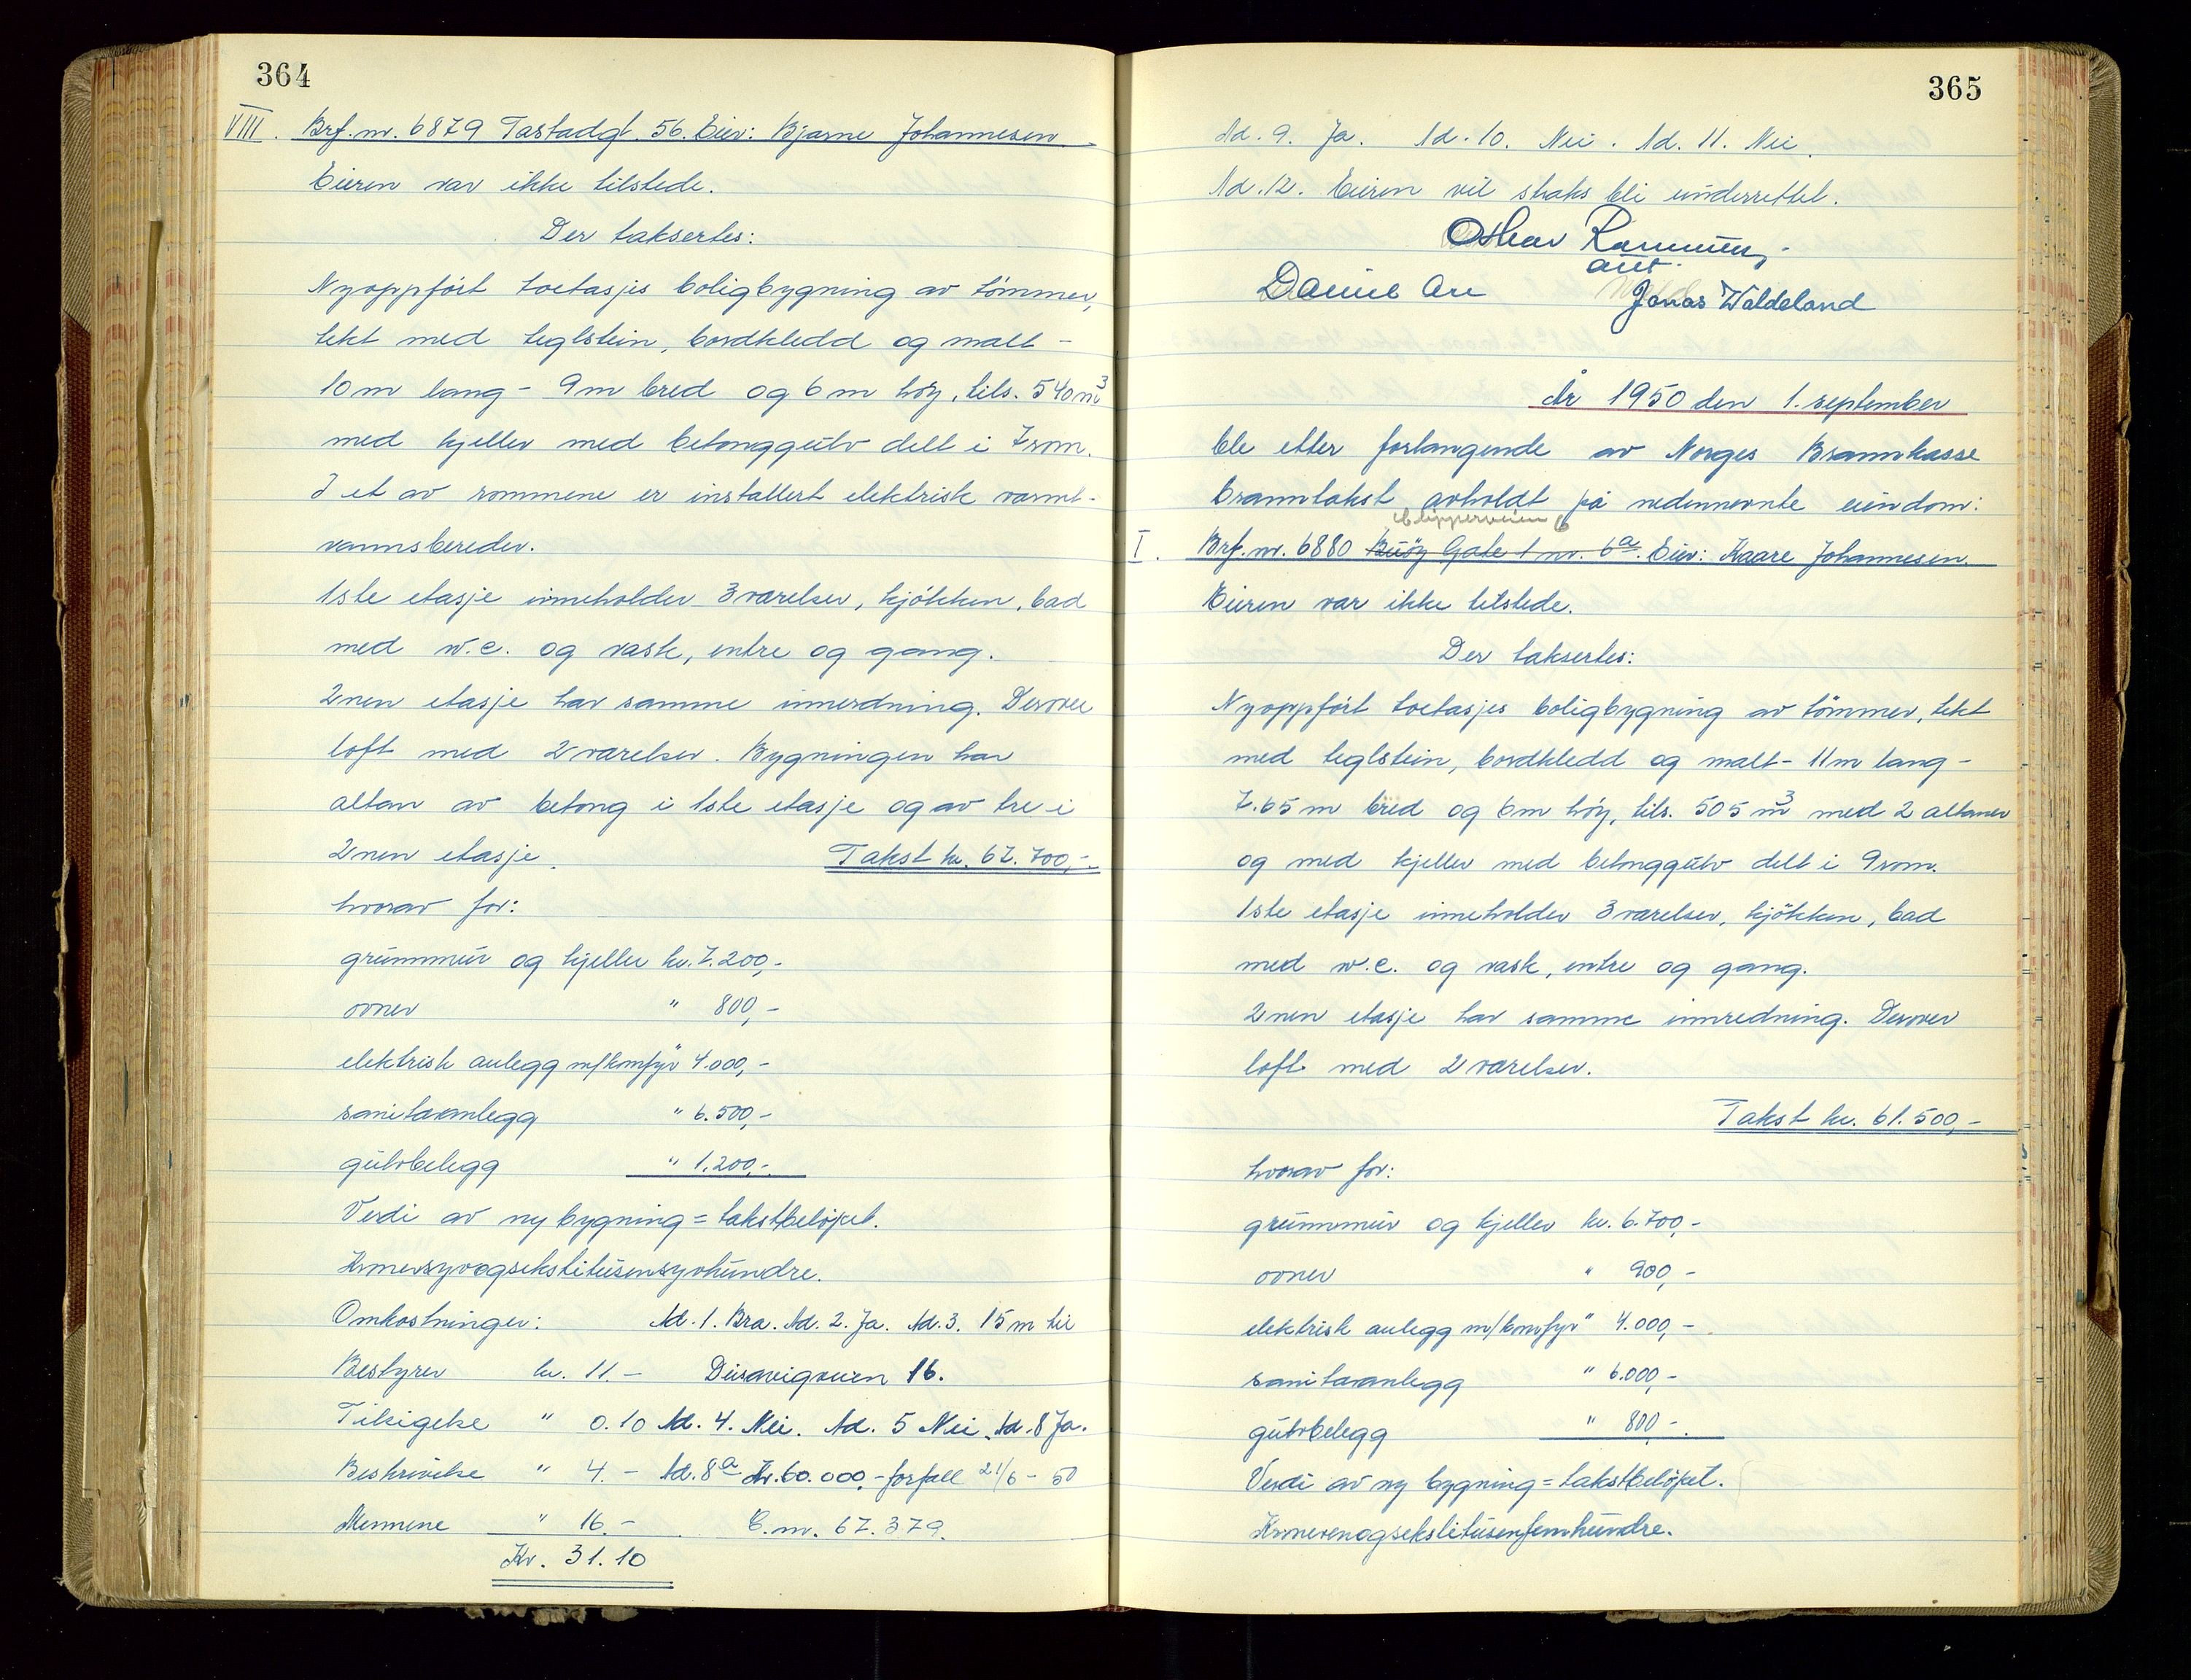 364
VIII. Brf. nr. 6879 Tastadgt. 56. Eier: Bjarne Johannesen
Eieren var ikke tilstede.
Der taksertes:
Nyoppført toetasjes boligbygning av tømmer,
tekt med teglstein, bordkledd og malt -
10 m lang - 9 m bred og 6 m høy, tils. 540 m³
med kjeller med betonggulv delt i 7 rom.
I et av rommene er installert elektrisk varmt-
vannsbereder.
1ste etasje inneholder 3 værelser, kjøkken, bad
med w.c. og vask, entre og gang.
2nen etasje har samme innerdning. Derover
loft med 2 værelser. Bygningen har
altan av betong i 1ste etasje og av tre i
2nen etasje. Takst kr. 67.700,-
hvorav for:
grunnmur og kjeller kr. 7.200,-
ovner " 800,-
elektrisk anlegg m/komfyr " 4.000,-
sanitæranlegg " 6.500,-
gulvbelegg " 1.200,-
Verdi av ny bygning = takstbeløpet.
Kronersyvogsekstitusensyvhundre.
Omkostninger: Ad. 1. Bra. Ad. 2. Ja. Ad. 3. 15 m til
Bestyrer kr. 11.- Dusavigveien 16.
Tilsigelse " 0.10 Ad. 4. Nei. Ad. 5 Nei. Ad. 8 Ja.
Beskrivelse " 4.- Ad. 8a Kr. 60.000,- forfall 21/6 - 50
Mennene " 16.- E.nr. 67.379.
Kr. 31.10
365
Ad. 9. Ja. Ad. 10. Nei. Ad. 11. Nei.
Ad. 12. Eieren vil straks bli underrettet.
Oskar Rasmussen
aut.
Daniel Are Jonas Waldeland
År 1950 den 1. september
ble etter forlangende av Norges Brannkasse
branntakst avholdt på nedennevnte eiendom:
Klipperveien 6
I. Brf. nr. 6880 Buøy Gate 1 nr. 6a. Eier: Kaare Johannesen.
Eieren var ikke tilstede.
Der taksertes:
Nyoppført toetasjes boligbygning av tømmer, tekt
med teglstein, bordkledd og malt - 11 m lang -
7.65 m bred og 6 m høy, tils. 505 m³ med 2 altaner
og med kjeller med betonggulv delt i 9 rom.
1ste etasje inneholder 3 værelser, kjøkken, bad
med w.c. og vask, entre og gang.
2nen etasje har samme innredning. Derover
loft med 2 værelser.
Takst kr. 61.500,-
hvorav for:
grunnmur og kjeller kr. 6.700,-
ovner " 900,-
elektrisk anlegg m/komfyr " 4.000,-
sanitæranlegg " 6.000,-
gulvbelegg " 800,-
Verdi av ny bygning = takstbeløpet.
Kronerenogsekstitusenfemhundre.